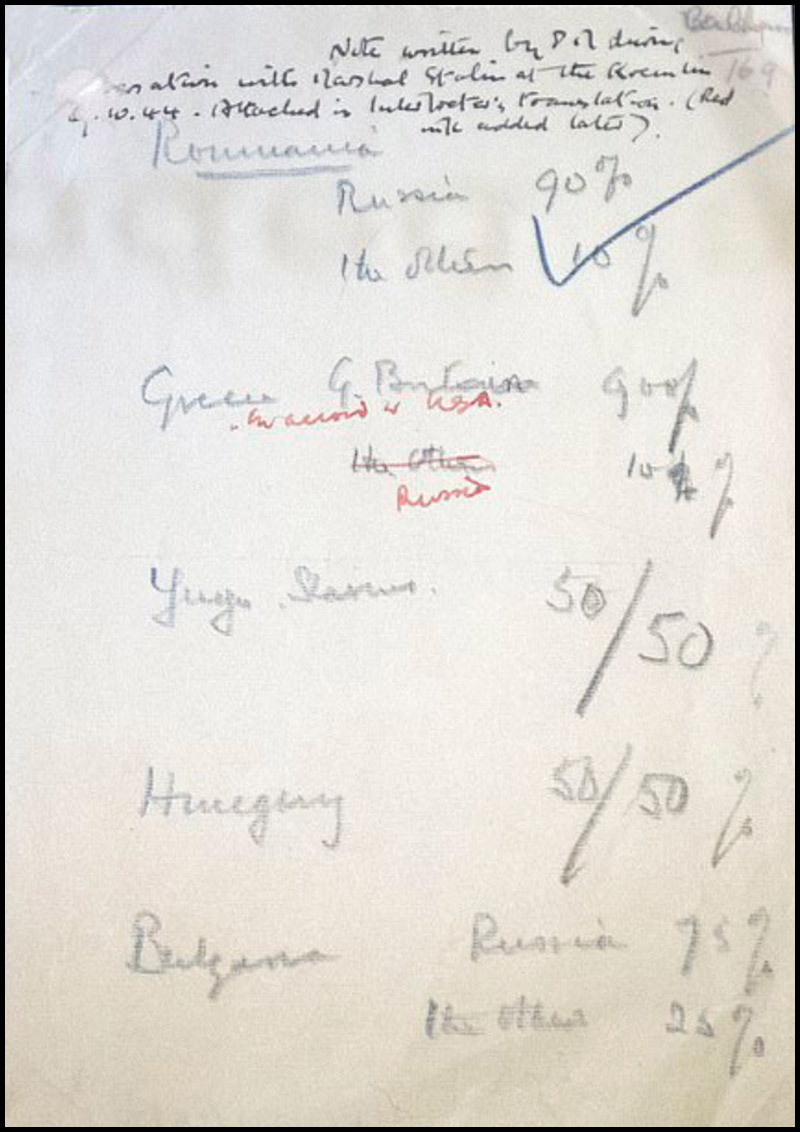 Note written by P M during
ersation with Marshal Stalin at the Kremlin
169
9.10.44. Attached is Interlocter's translation. (Red
ink added later).
Roumania
Russia 90%
the others 10%
Greece G. Britain 90%
in accord w USA.
the others 10%
Russia
Yugo Slavia. 50/50 %
Hungary 50/50 %
Bulgaria Russia 75%
the other 25%